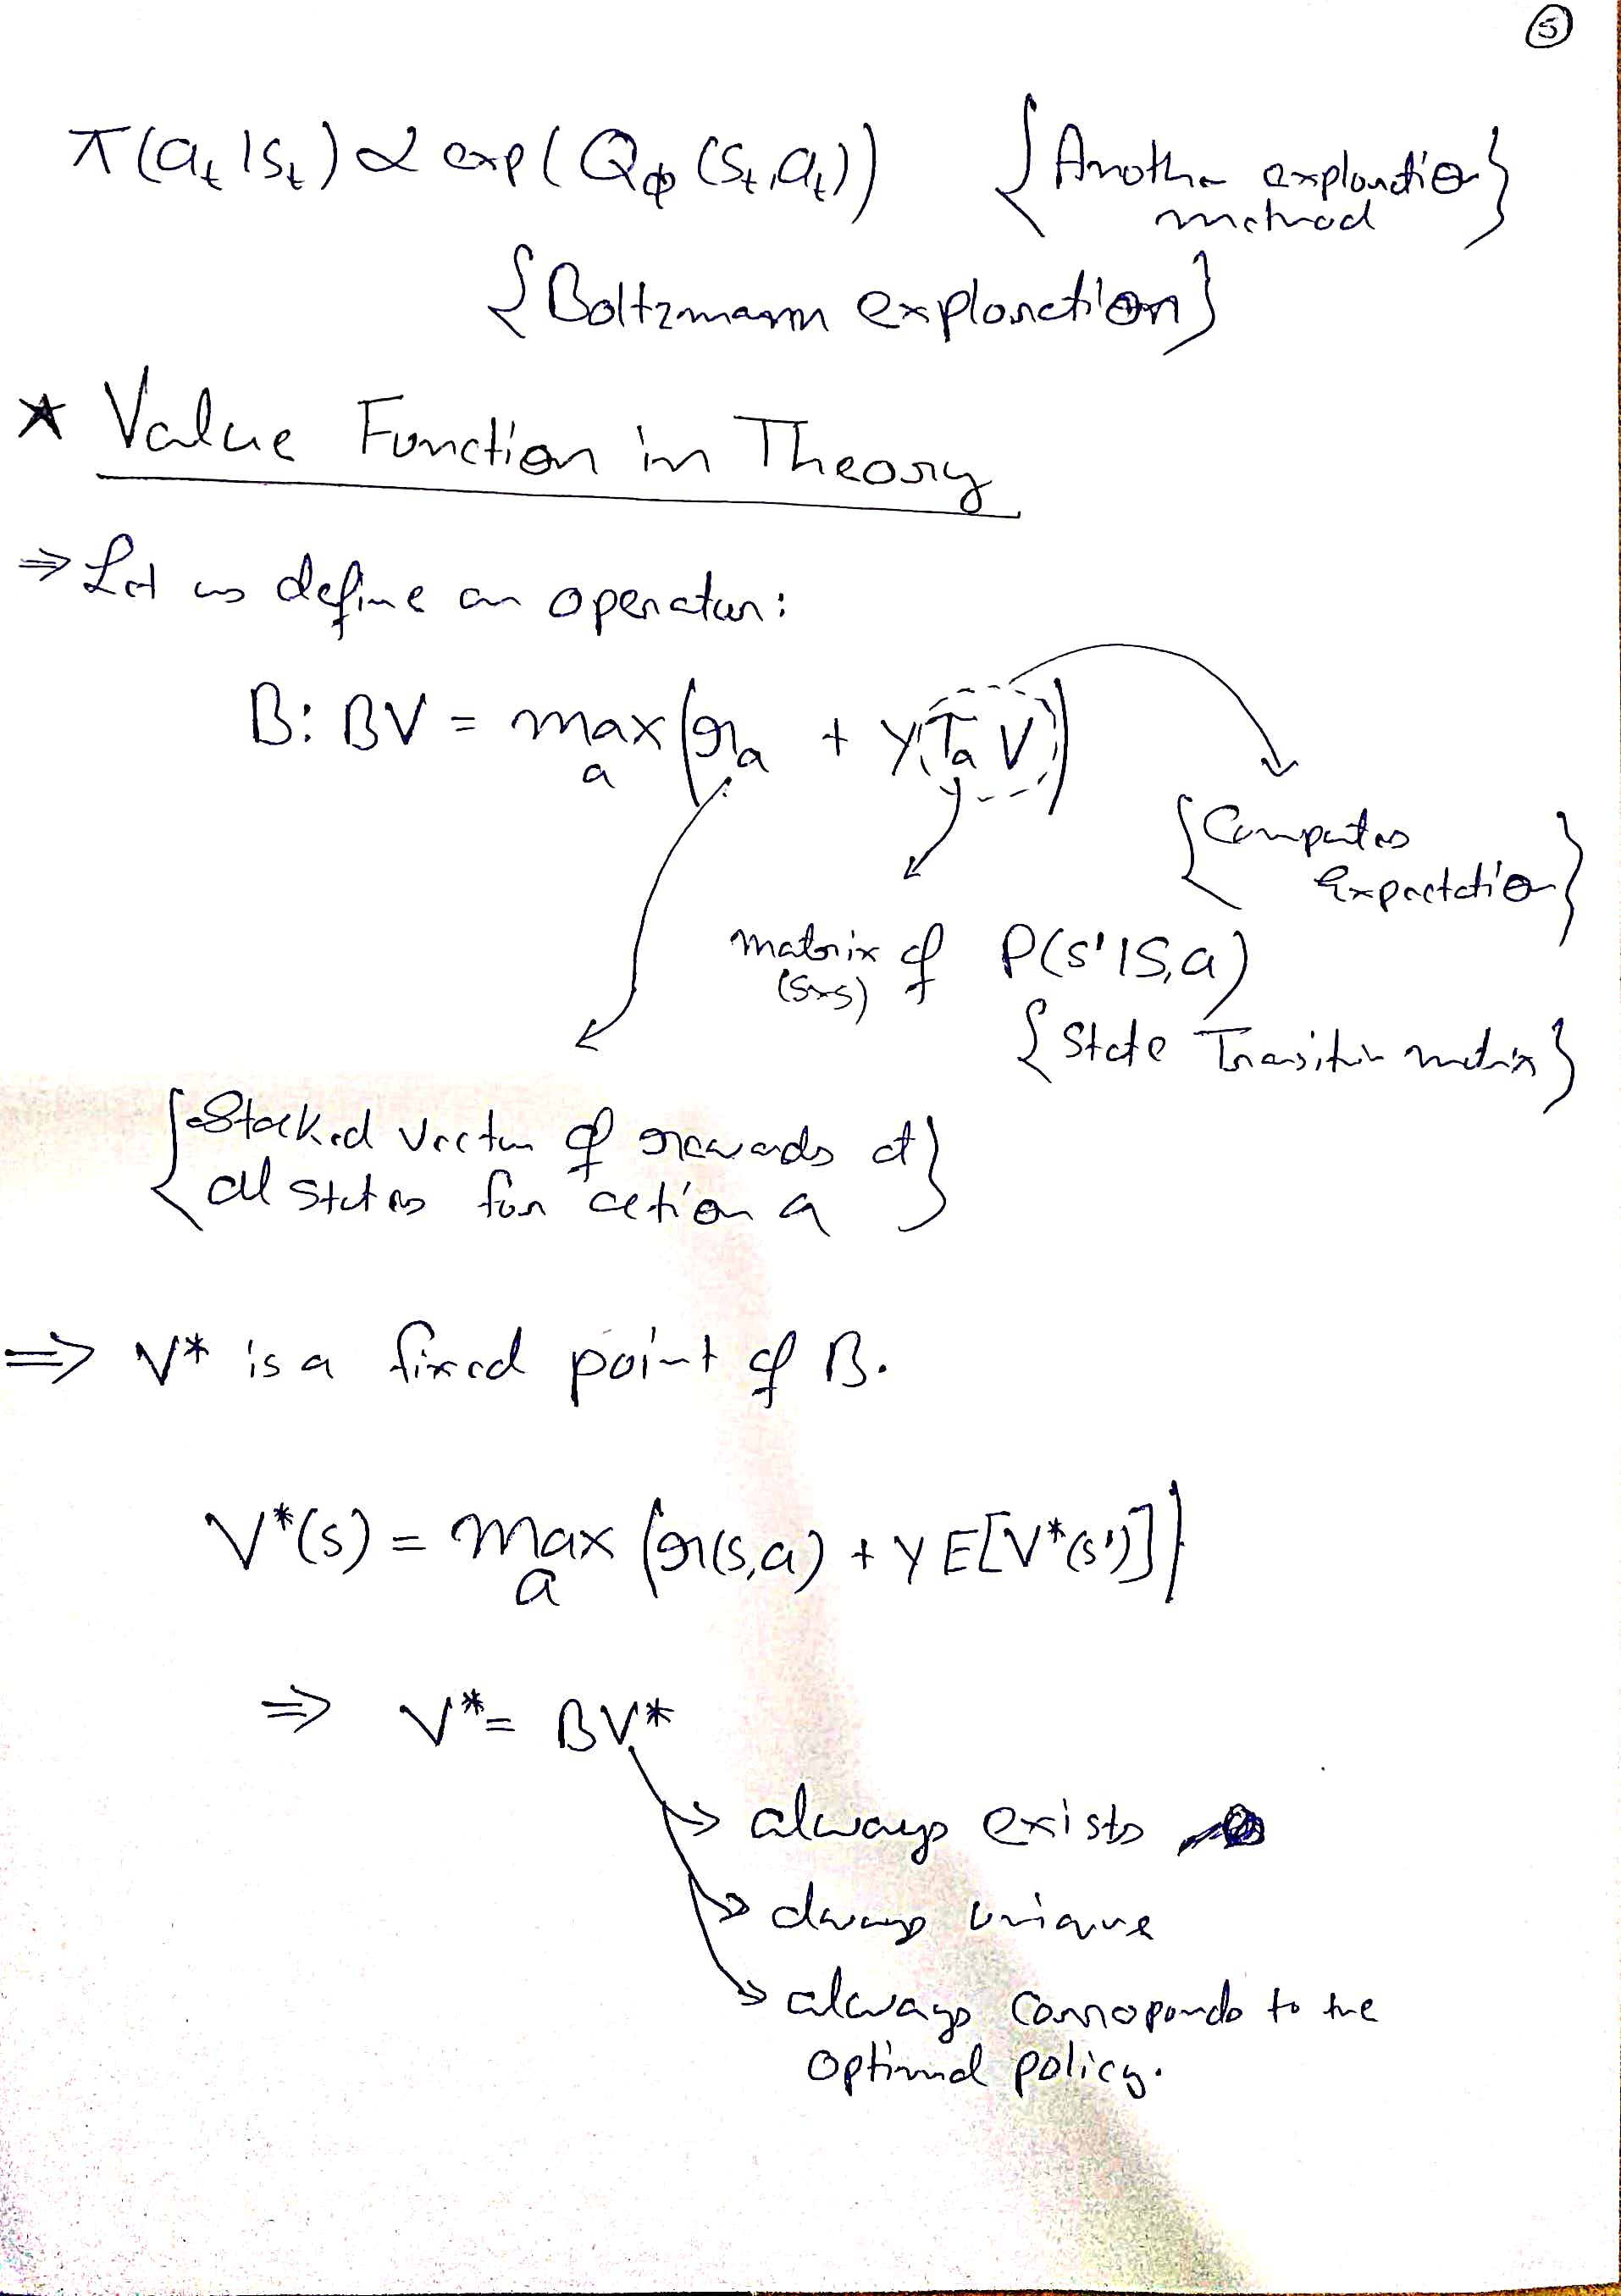 5
π(a_t|s_t) ∝ exp(Q_φ(s_t, a_t)) {Another exploration
method}
{Boltzmann exploration}
* Value Function in Theory
⇒ Let us define an operator:
B: BV = max_a (r_a + γ T_a V)
{Computes
Expectation}
matrix of P(s'|s,a)
(s×s)
{State Transition matrix}
{Stacked vector of rewards at
all states for action a}
⇒ V* is a fixed point of B.
V*(s) = max_a (r(s,a) + γ E[V*(s')])
⇒ V* = BV*
→ always exists
→ always unique
→ always corresponds to the
optimal policy.